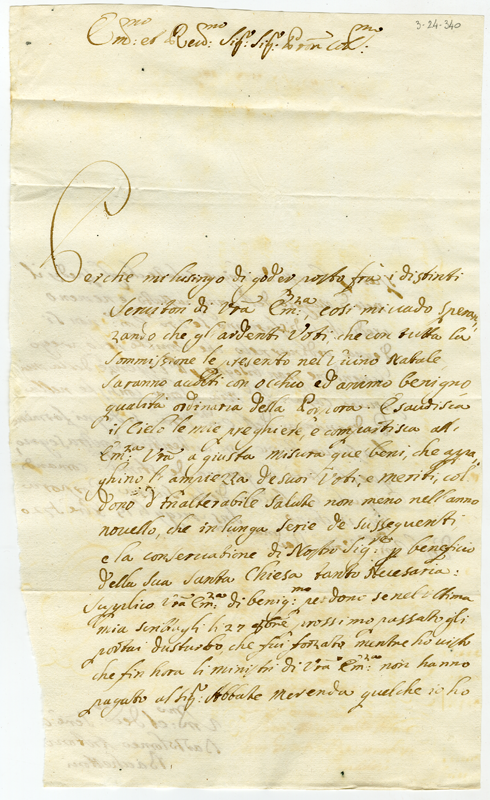 3-24-340
Em:mo et Reu:mo Sig:r Sig:r P'ron Col:mo
Perche me lusingo di goder posto frà i distinti
Seruitori di Vra Em:za, così mi uado speran
zando che gl'ardenti Voti, che con tutta la
sommissione le presento nell' uicino Natale
saranno auditi con occhio ed animo benigno
qualità ordinaria della Porpora. Esaudisca
il Cielo le mie preghiere, e compartisca all'
Em:za Vra a giusta misura que beni, che appa
ghino l'ampiezza de suoi Voti, e meriti, col
dono d'inalterabile salute non meno nell' anno
nouello, che in lunga serie de susseguenti
e la conseruatione di Nostro Sig:re p beneficio
della sua Santa Chiesa tanto necesaria:
Supplico Vra Em:za di benig:mo perdono se nell' ultima
mia scrittagli li 27 9bre prossimo passato gli
portai disturbo, che fui forzato mentre hò uisto
che fin hora li ministri di Vra Em:za non hanno
pagato al Sig:r Abbate Merenda quelche io ho